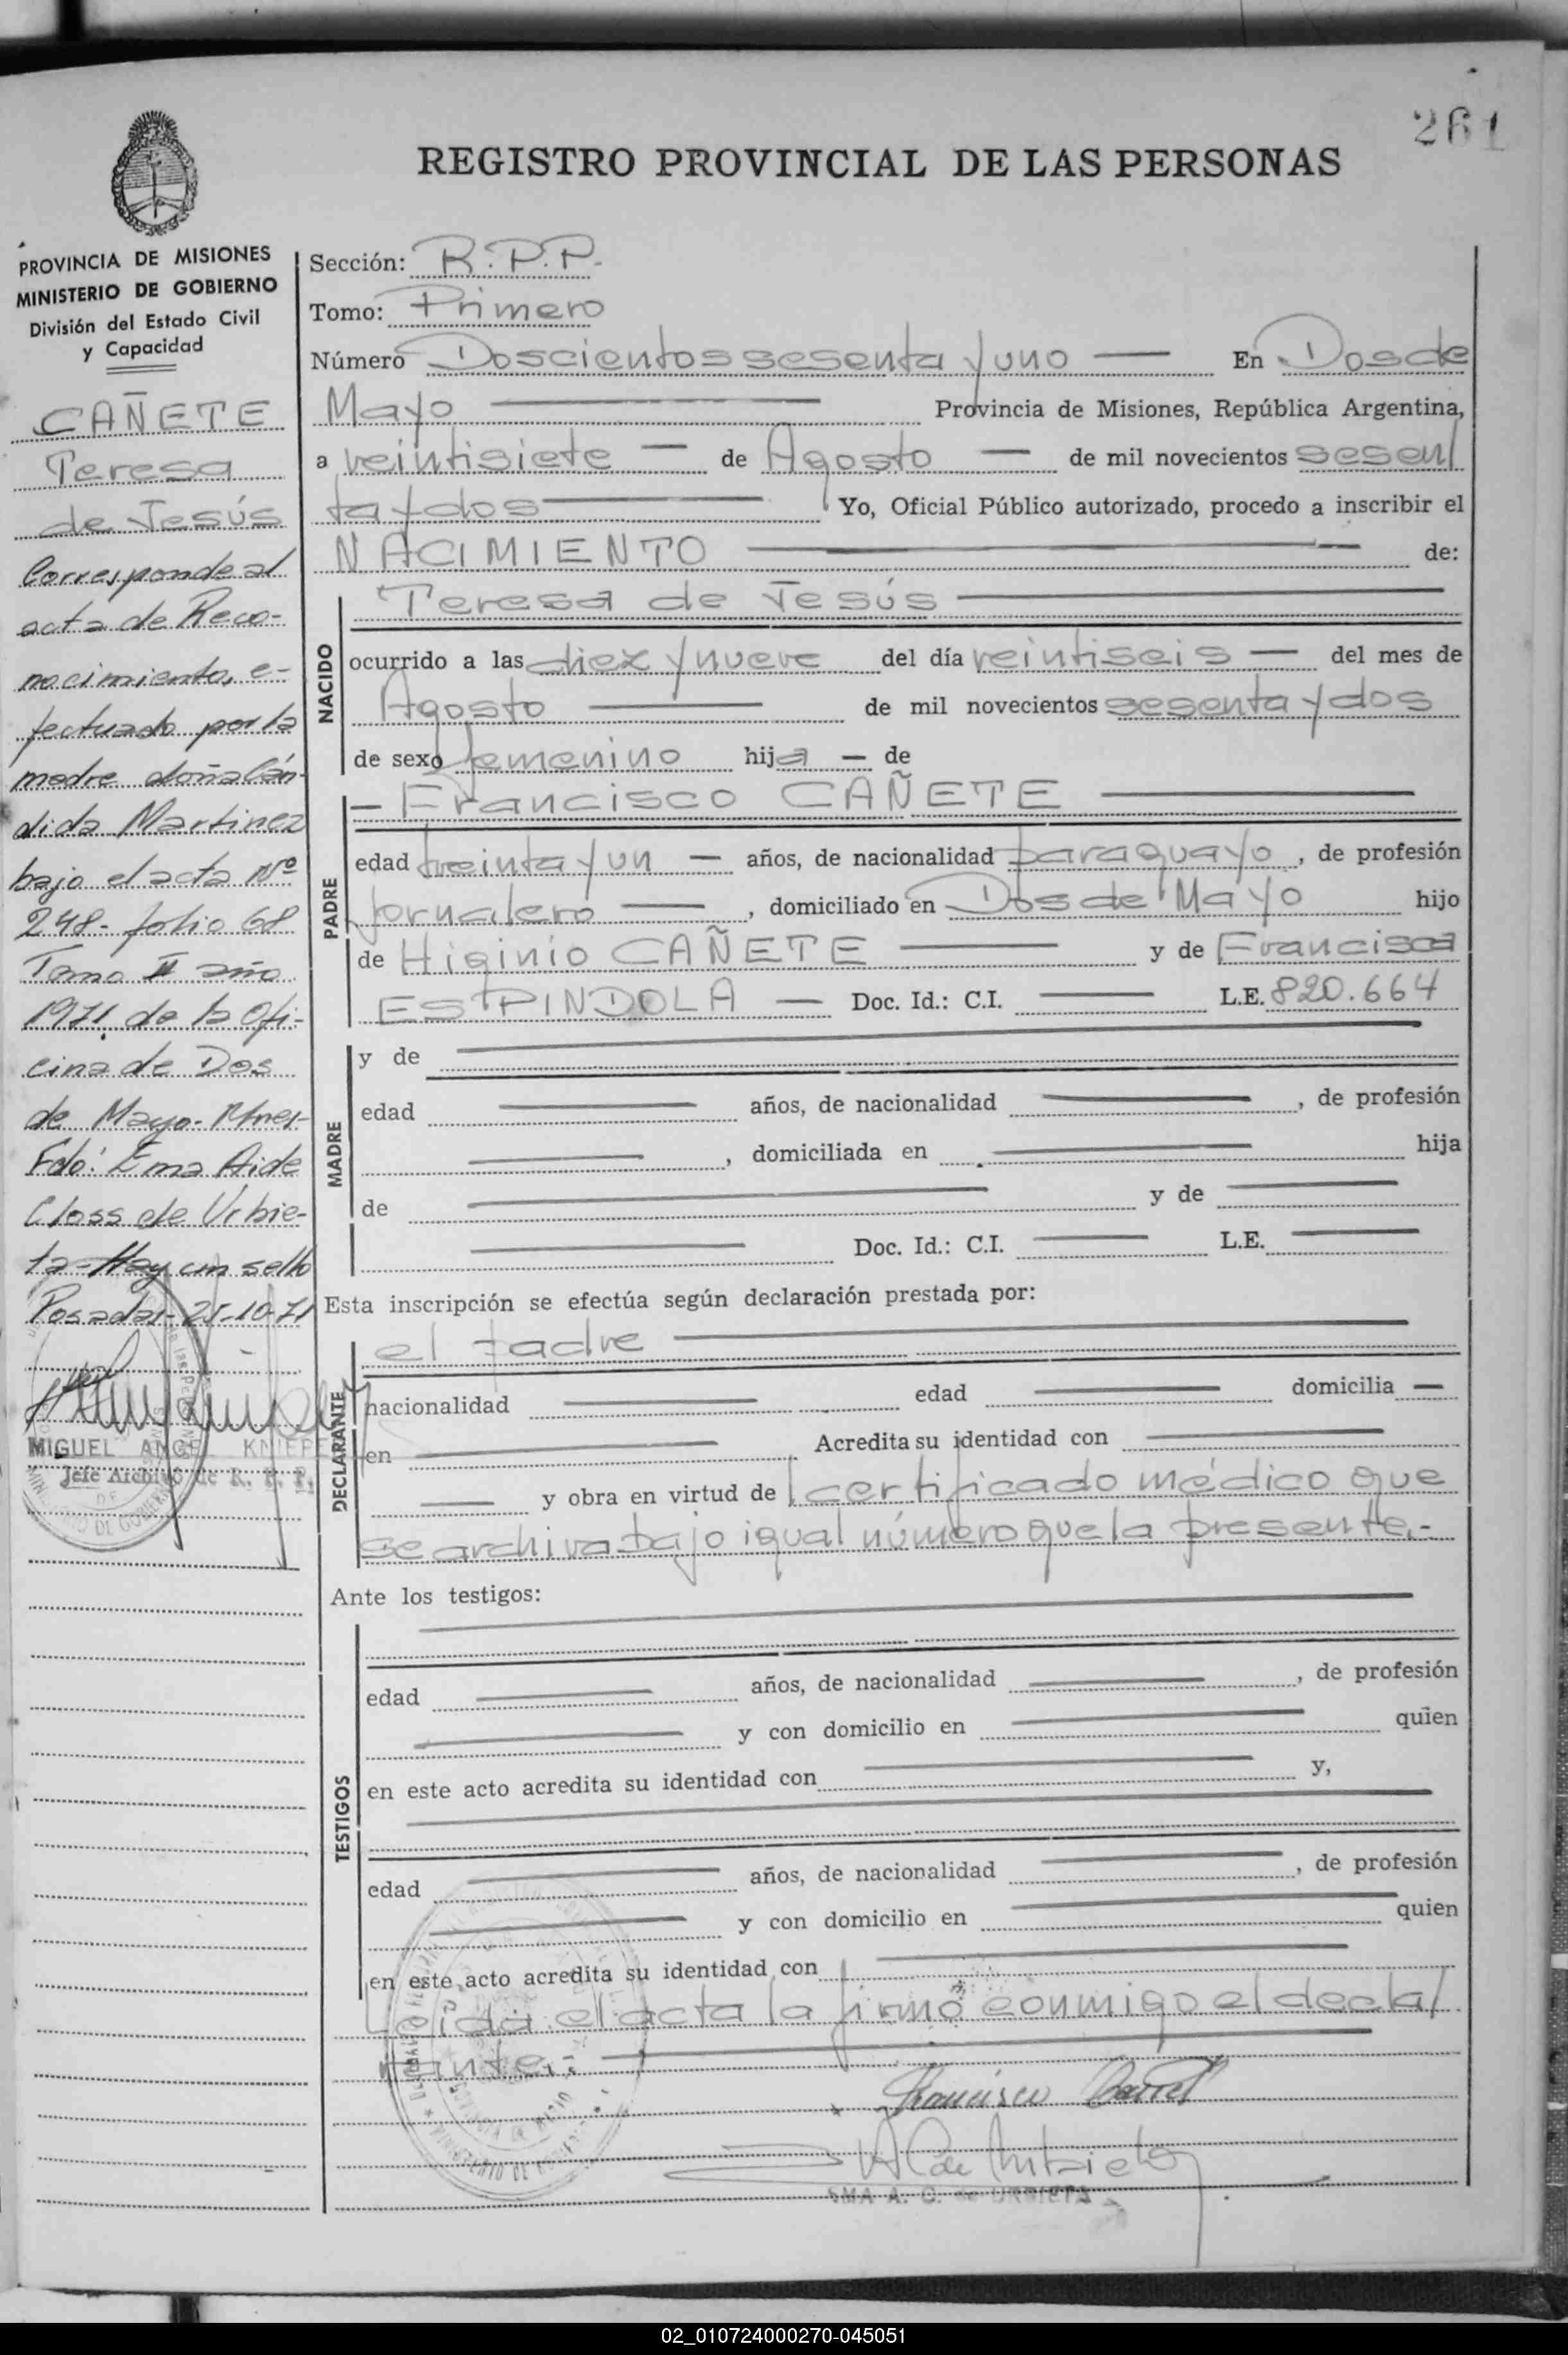 261
REGISTRO PROVINCIAL DE LAS PERSONAS
PROVINCIA DE MISIONES
MINISTERIO DE GOBIERNO
División del Estado Civil
y Capacidad
CAÑETE
Teresa
de Jesús
Corresponde al
acta de Reco-
nocimiento, e-
fectuado por la
madre doña Cán-
dida Martinez
bajo el acta Nº
248- folio 68
Tomo II año
1971 de la Ofi-
cina de Dos
de Mayo- Mnes-
Fdo: Ema Aide
Closs de Urbie-
ta- Hay un sello
Posadas- 25-10-71
MIGUEL ANGEL
Jefe Archivo de R. P. P.
Sección: R.P.P.-
Tomo: Primero
Número Doscientos sesenta y uno — En Dos de
Mayo — Provincia de Misiones, República Argentina,
a veintisiete — de Agosto — de mil novecientos sesen/
ta y dos — Yo, Oficial Público autorizado, procedo a inscribir el
NACIMIENTO — de:
NACIDO
Teresa de Jesús —
ocurrido a las diez y nueve del día veintiseis — del mes de
Agosto — de mil novecientos sesenta y dos
de sexo femenino hija — de
PADRE
— Francisco CAÑETE —
edad treinta y un — años, de nacionalidad paraguayo, de profesión
jornalero —, domiciliado en Dos de Mayo hijo
de Higinio CAÑETE — y de Francisca
ESPINDOLA — Doc. Id.: C.I. — L.E. 820.664
MADRE
y de —
edad — años, de nacionalidad —, de profesión
—, domiciliada en — hija
de — y de —
— Doc. Id.: C.I. — L.E. —
Esta inscripción se efectúa según declaración prestada por:
DECLARANTE
el padre —
nacionalidad — edad — domicilia —
en — Acredita su identidad con —
— y obra en virtud de certificado médico que
se archiva bajo igual número que la presente.-
Ante los testigos:
TESTIGOS
—
edad — años, de nacionalidad —, de profesión
— y con domicilio en — quien
en este acto acredita su identidad con — y,
—
edad — años, de nacionalidad —, de profesión
— y con domicilio en — quien
en este acto acredita su identidad con —
Leída el acta la firmó conmigo el decla/
rante.- —
Francisco
EMA A. C. de URBIETA
02_010724000270-045051